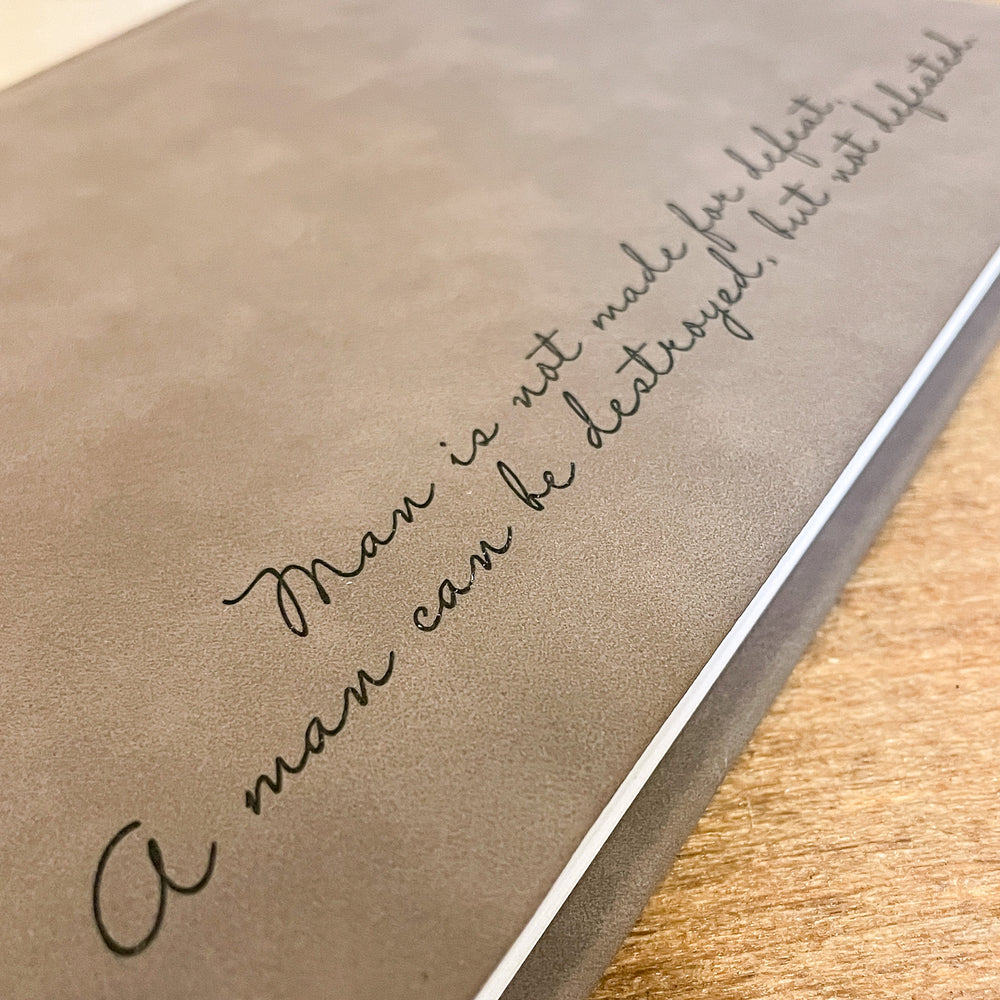 Man is not made for defeat.
A man can be destroyed, but not defeated.